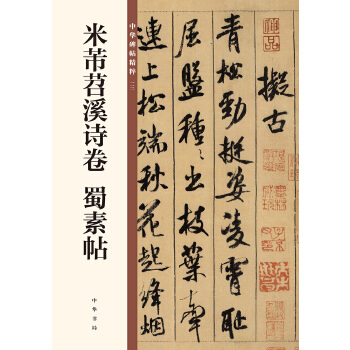 米芾苕溪诗卷 蜀素帖
中华碑帖精粹
中華書局
擬古
青松勁挺姿凌霄恥
屈盤種々出枝葉牽
連上松端秋花起絳烟